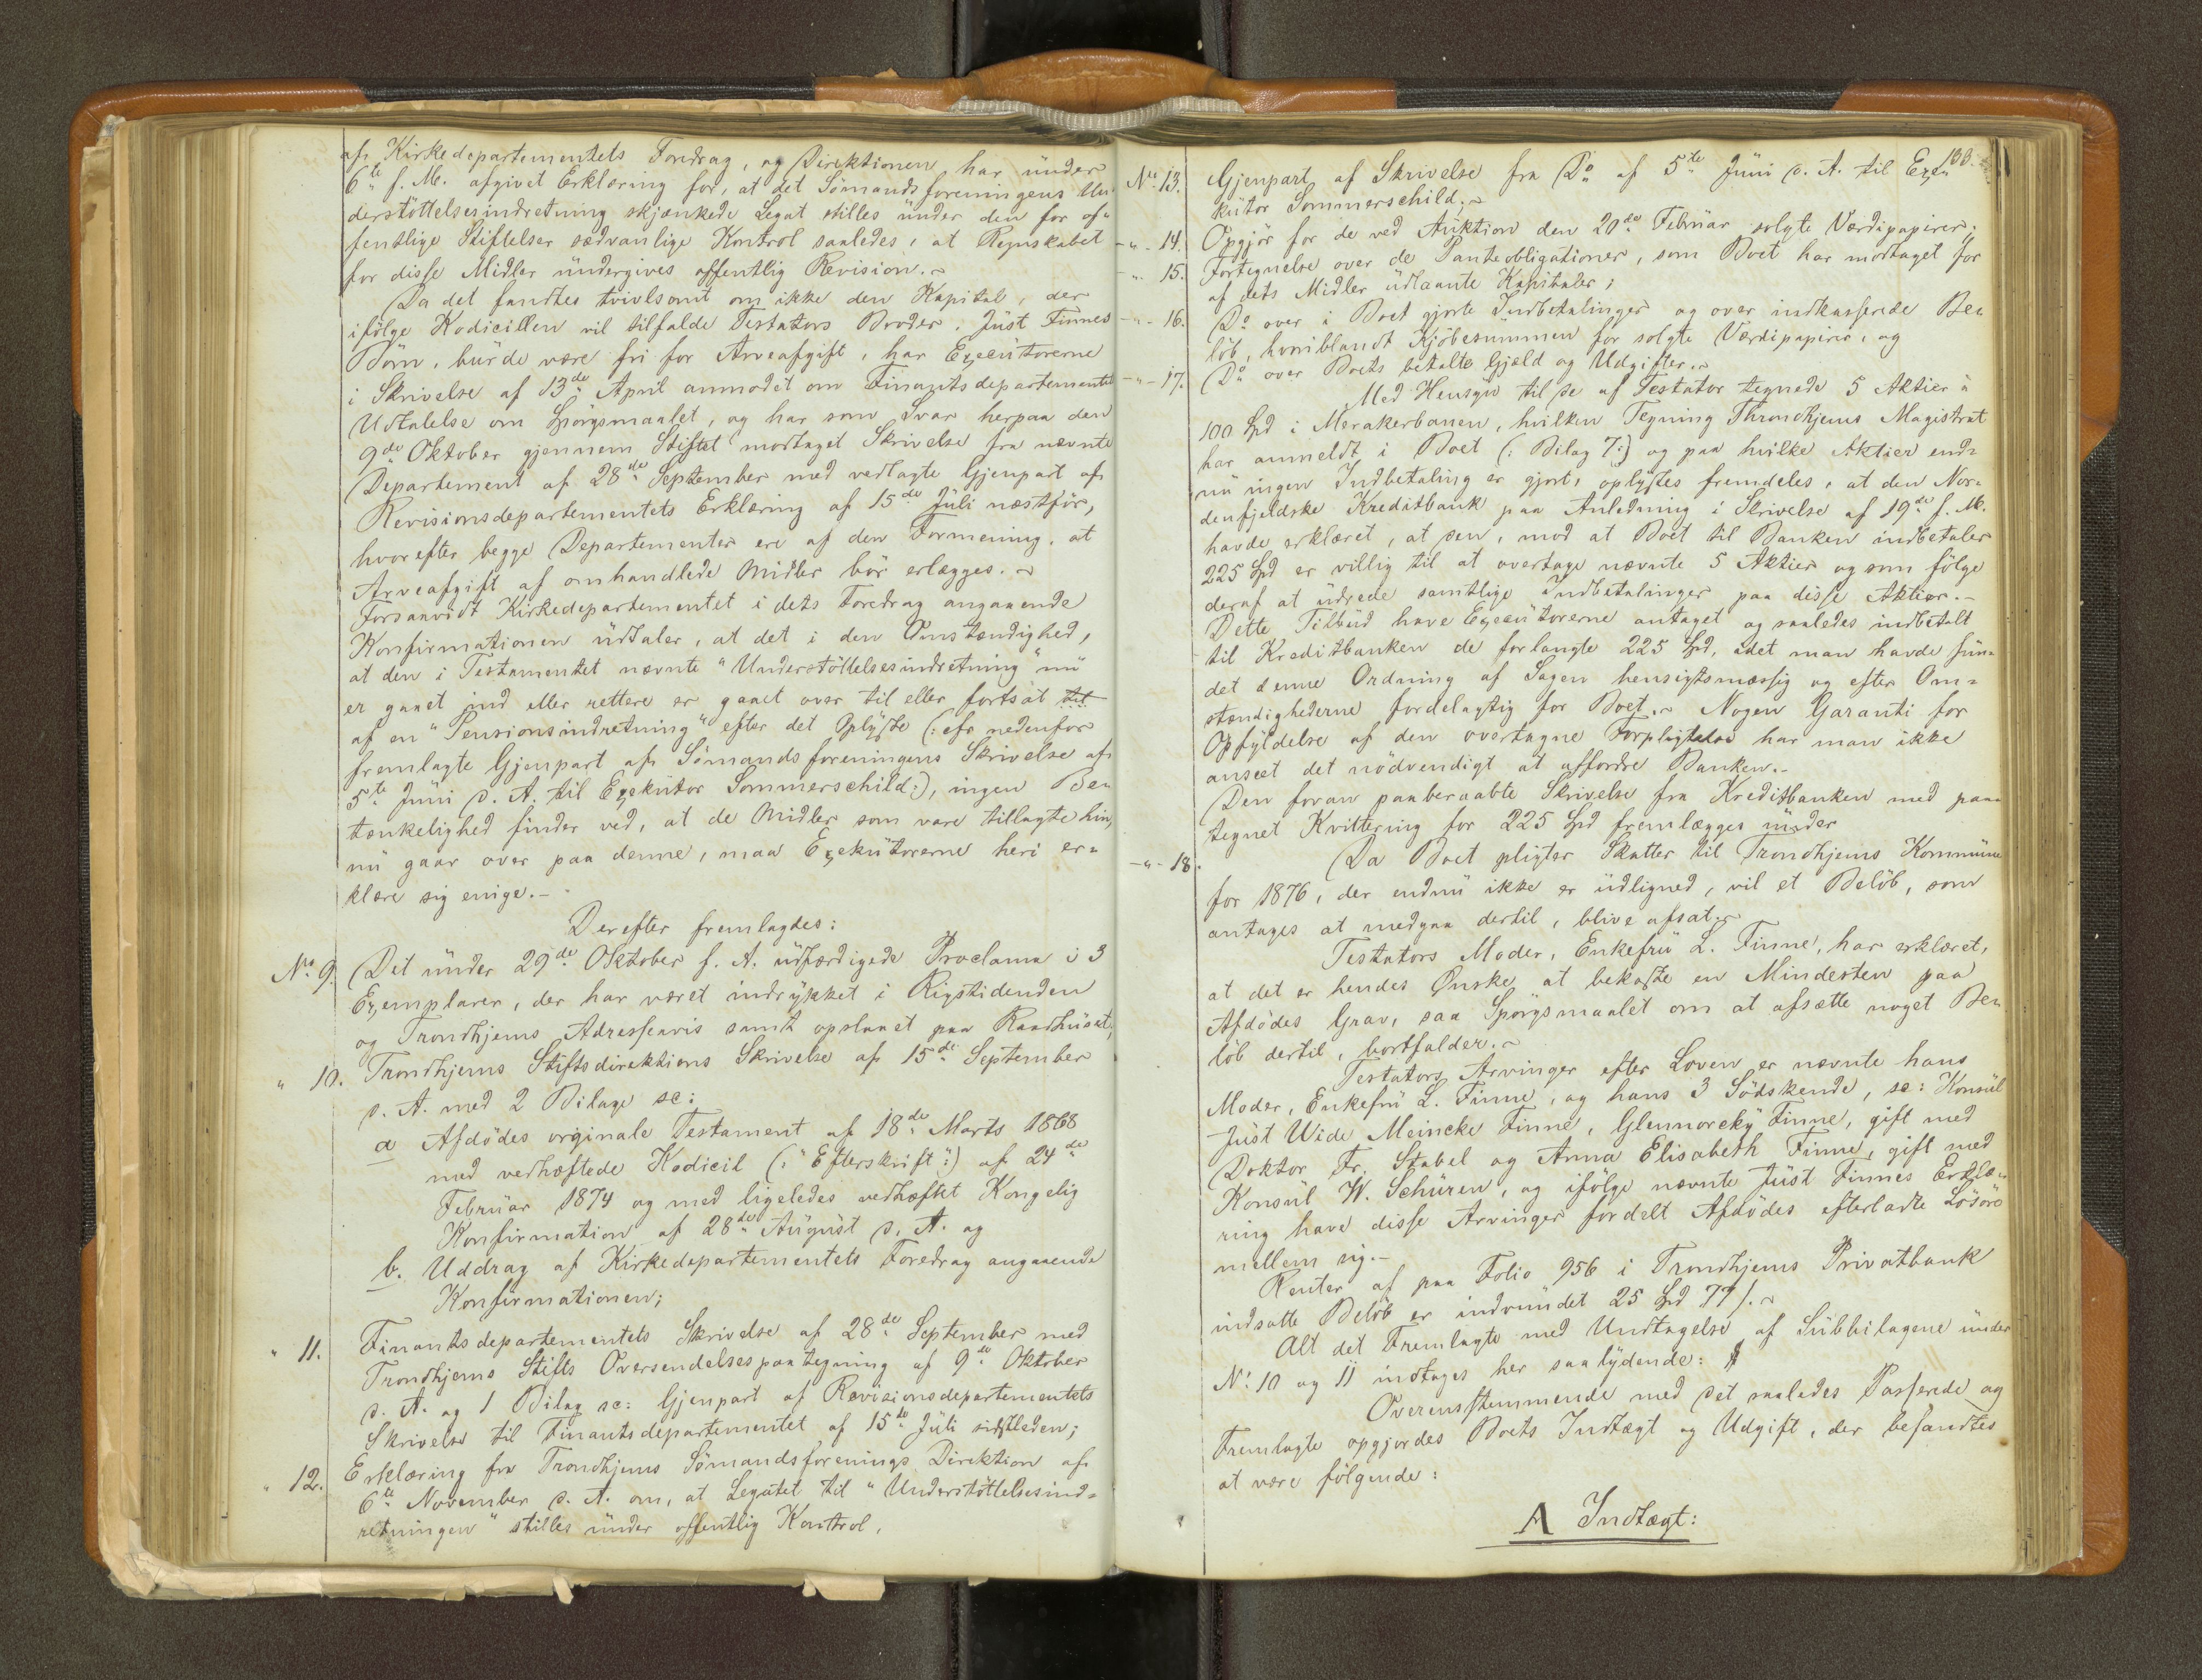 af Kirkedepartementets Foredrag, og Direktionen har ünder
6te f. M. afgivet Erklæring for, at det Sömandsforeningens Un-
derstöttelsesindretning skjænkede Legat stilles ünder den for of-
fentlige Stiftelser sædvanlige Kontrol saaledes, at Regnskabet
for disse Midler ündergives offentlig Revision.
Da det fandtes tvivlsomt om ikke den Kapital, der
ifölge Kodicillen vil tilfalde Testators Broder, Jüst Finnes
Börn, bürde være fri for Arveafgift, har Executorerne
i Skrivelse af 13de April anmodet om Finantsdepartementets
Udtalelse om Spörgsmaalet, og har som Svar herpaa den
9de Oktober gjennem Stiftet modtaget Skrivelse fra nævnte
Departement af 28de September med vedlagte Gjenpart af
Revisionsdepartementets Erklæring af 15de Jüli næstfør,
hvorefter begge Departementer ere af den Formening, at
Arveafgift af omhandlede Midler bör erlægges.
Forsaavidt Kirkedepartementet i dets Foredrag angaaende
Konfirmationen üdtaler, at det i den Omstændighed,
at den i Testamentet nævnte "Understöttelsesindretning" nü
er gaaet ind eller rettere er gaaet over til eller fortsat til
af en "Pensionsindretning" efter det Oplyste (: cfr nedenfor
fremlagte Gjenpart af Sömandsforeningens Skrivelse af
5te Jüni d. A. til Exekütor Sommerschild:), ingen Be-
tænkelighed finder ved, at de Midler som vare tillagte hin,
nü gaar over paa denne, maa Exekütorerne heri er-
klære sig enige.-
Derefter fremlagdes:
No 9. Det ünder 29de Oktober f. A. üdfærdigede Proclama i 3
Exemplarer, der har været indrykket i Rigstidenden
og Trondhjems Adresseavis samt opslaaet paa Raadhüset;
" 10. Trondhjems Stiftsdirektions Skrivelse af 15de September
d. A. med 2 Bilage sc:
a Afdödes originale Testament af 18de Marts 1868
med vedhæftede Kodicil (:"Efterskrift":) af 24de
Februar 1874 og med ligeledes vedhæftet Kongelig
Konfirmation af 28de Aügüst d. A. og
b. Uddrag af Kirkedepartementets Foredrag angaaende
Konfirmationen;
" 11. Finantsdepartementets Skrivelse af 28de September med
Trondhjems Stifts Oversendelsespaategning af 9de Oktober
d. A. og 1 Bilag sc: Gjenpart af Revisionsdepartementets
Skrivelse til Finantsdepartementet af 15de Jüli sidstleden;
" 12. Erklæring fra Trondhjems Sömandsforenings Direktion af
6te November d. A. om, at Legatet til "Understöttelsesind-
retningen" stilles ünder offentlig Kontrol,
133.
No 13. Gjenpart af Skrivelse fra Do af 5te Jüni d. A. til Exe-
kütor Sommerschild.
-"- 14. Opgjör for de ved Aüktion den 20de Februar solgte Værdipapirer;
-"- 15. Fortegnelse over de Panteobligationer, som Boet har modtaget for
af dets Midler üdlaante Kapitaler;
-"- 16. Do over i Boet gjorte Indbetalinger og over indkasserede Be-
löb, hvoriblandt Kjöbesümmen for solgte Værdipapirer, og
-"- 17. Do over Boets betalte Gjæld og Udgifter.
Med Hensyn til de af Testator tegnede 5 Aktier à
100 Spd i Merakerbanen, hvilken Tegning Throndhjems Magistrat
har anmeldt i Boet (: Bilag 7:) og paa hvilke Aktier end-
nü ingen Indbetaling er gjort, oplystes fremdeles, at den Nor-
denfjeldske Kreditbank paa Anledning i Skrivelse af 19de f. M.
havde erklæret, at den, mod at Boet til Banken indbetaler
225 Spd er villig til at overtage nævnte 5 Aktier og som fölge
deraf at üdrede samtlige Indbetalinger paa disse Aktier.-
Dette Tilbüd have Execütorerne antaget og saaledes indbetalt
til Kreditbanken de forlangte 225 Spd, idet man havde fün-
det denne Ordning af Sagen hensigtsmæssig og efter Om-
stændighederne fordelagtig for Boet. Nogen Garanti for
Opfyldelse af den overtagne Forpligtelse har man ikke
anseet det nödvendigt at affordre Banken.-
Den foran paaberaabte Skrivelse fra Kreditbanken med paa-
tegnet Kvittering for 225 Spd fremlægges ünder
-"- 18. Da Boet pligter Skatter til Trondhjems Kommüne
for 1876, der endnü ikke er üdlignet, vil et Belöb, som
antages at medgaa dertil, blive afsat.
Testators Moder, Enkefrü L. Finne, har erklæret,
at det er hendes Ønske at bekoste en Mindesten paa
Afdödes Grav, saa Spörgsmaalet om at afsætte noget Be-
löb dertil, bortfalder.
Testators Arvinger efter Loven er nævnte hans
Moder, Enkefrü L. Finne, og hans 3 Södskende, sc: Konsül
Jüst Wide Meincke Finne, Glennorcky Finne, gift med
Doktor Fr. Stabel og Anna Elisabeth Finne, gift med
Konsül W. Schüren, og ifölge nævnte Jüst Finnes Erklæ-
ring have disse Arvinger fordelt Afdödes efterladte Lösöre
mellem sig.-
Renter af paa Folio 956 i Trondhjems Privatbank
indsatte Belöb er indvündet 25 Spd 77 /.
Alt det Fremlagte med Undtagelse af Sübbilagene ünder
No 10 og 11 indtages her saalydende:
Overensstemmende med det saaledes Passerede og
Fremlagte opgjordes Boets Indtægt og Udgift, der befandtes
at være fölgende:
A Indtægt: